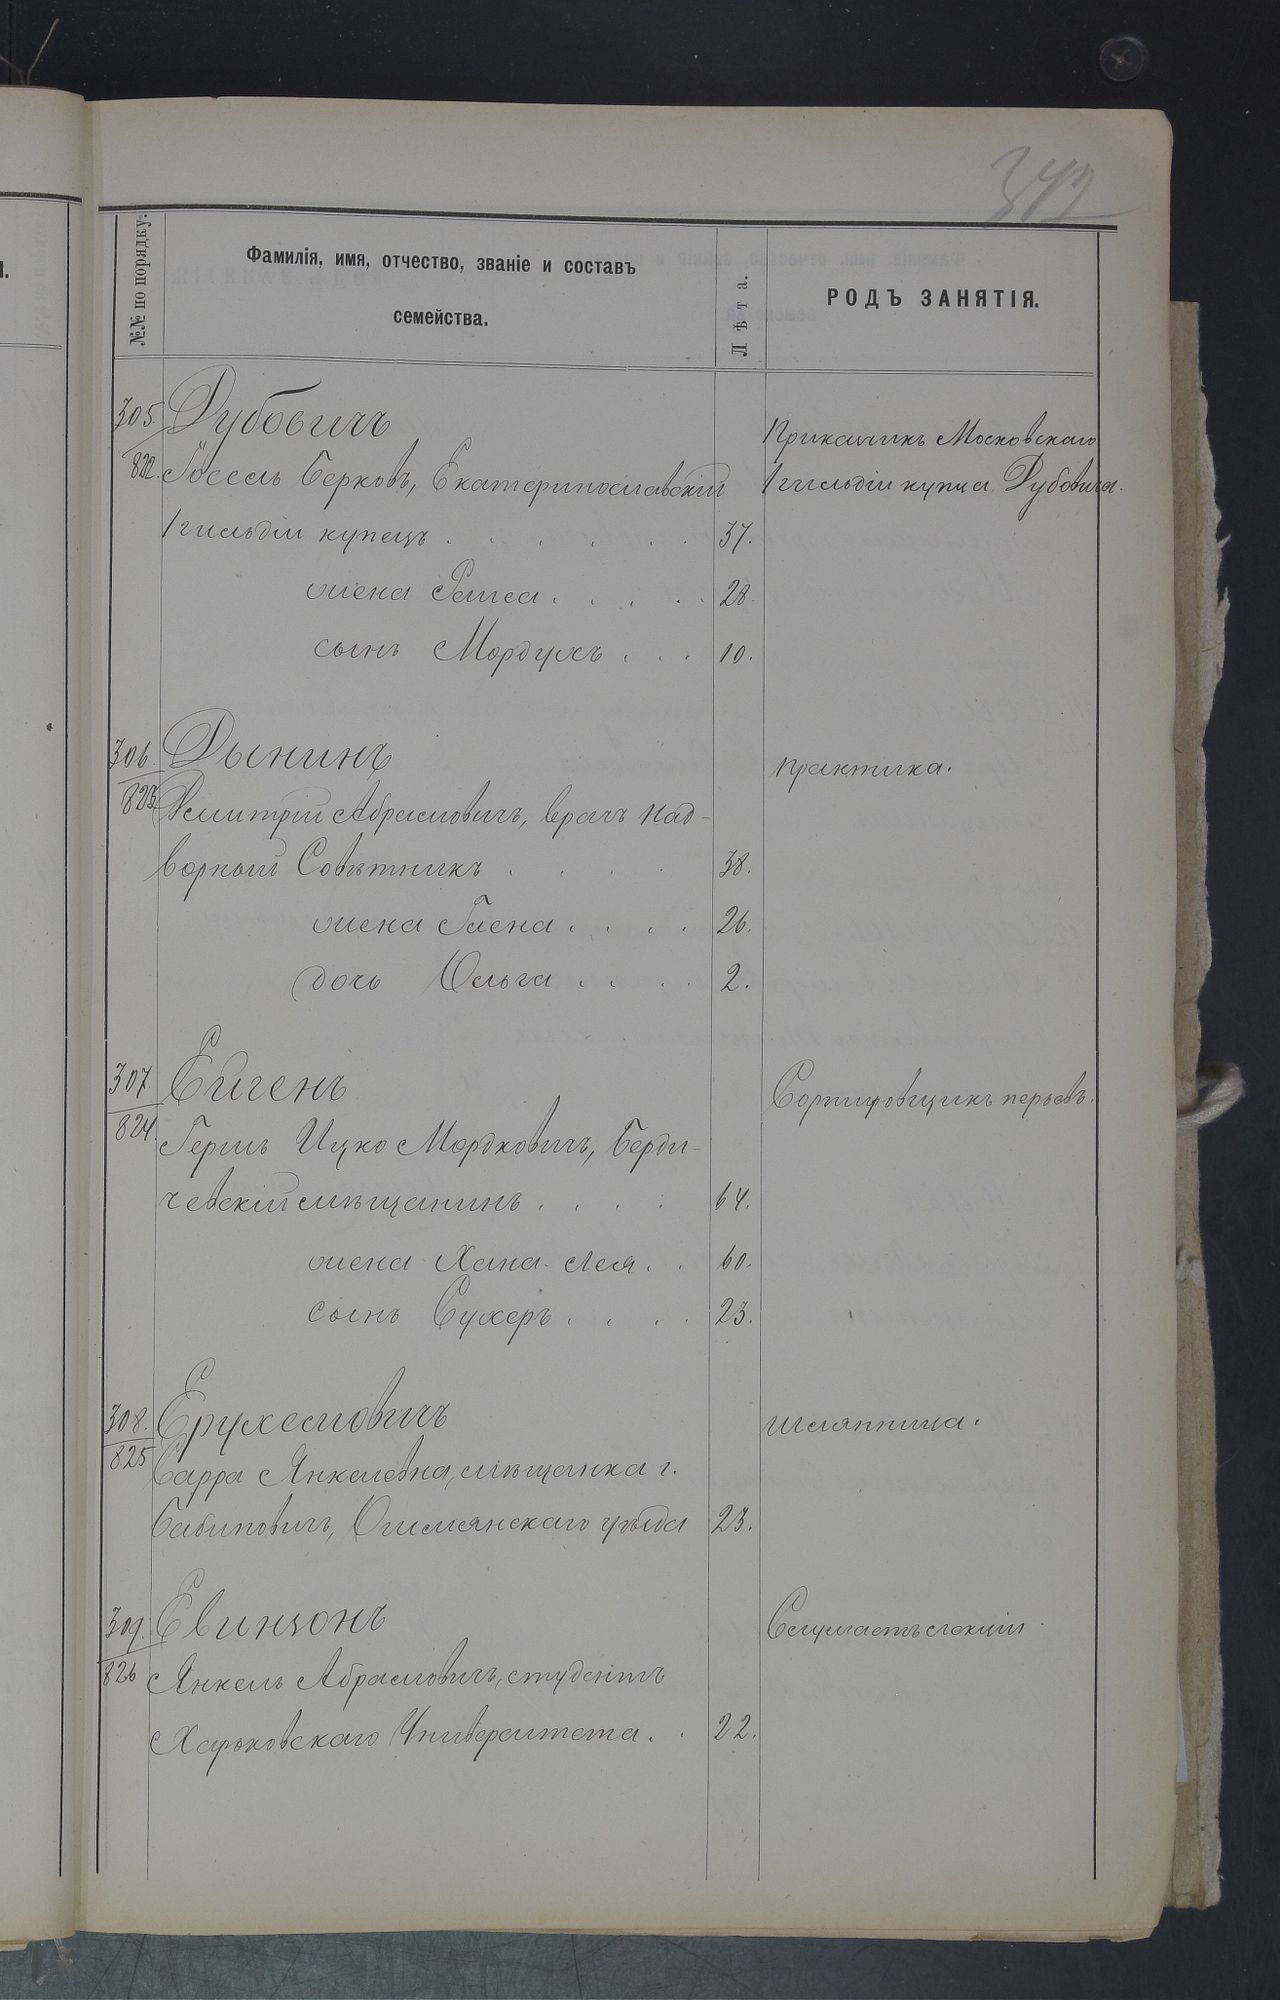 342
№№ по порядку.
Фамилія, имя, отчество, званіе и составъ
семейства.
Лѣта.
РОДЪ ЗАНЯТІЯ.
305 Дубовичъ
Прикащикъ Московскаго
822. Іосель Берковъ, Екатеринославскій 1 гильдіи купца Дубовича.
1 гильдіи купецъ . . . . . . 37.
жена Раиса . . . . . 28.
сынъ Мордухъ . . . 10.
306 Дынинъ практика.
823 Дмитрій Абрамовичъ, врачъ Над-
ворный Совѣтникъ . . . . 38.
жена Гіена . . . . 26.
дочь Ольга . . . . 2.
307 Ейгенъ Сортировщикъ перьевъ.
824 Гершъ Ицко Мордковичъ, Берди-
чевскій мѣщанинъ . . . . 64.
жена Хана-Лея . . 60.
сынъ Сухеръ . . . . 23.
308. Ерухемовичъ шляпница.
825 Сарра Янкелевна, мѣщанка г.
Ошмянскаго уѣзда 23.
309. Евинзонъ Слушаетъ лекціи
826 Янкель Абрамовичъ, студентъ
Харьковскаго Университета . . 22.